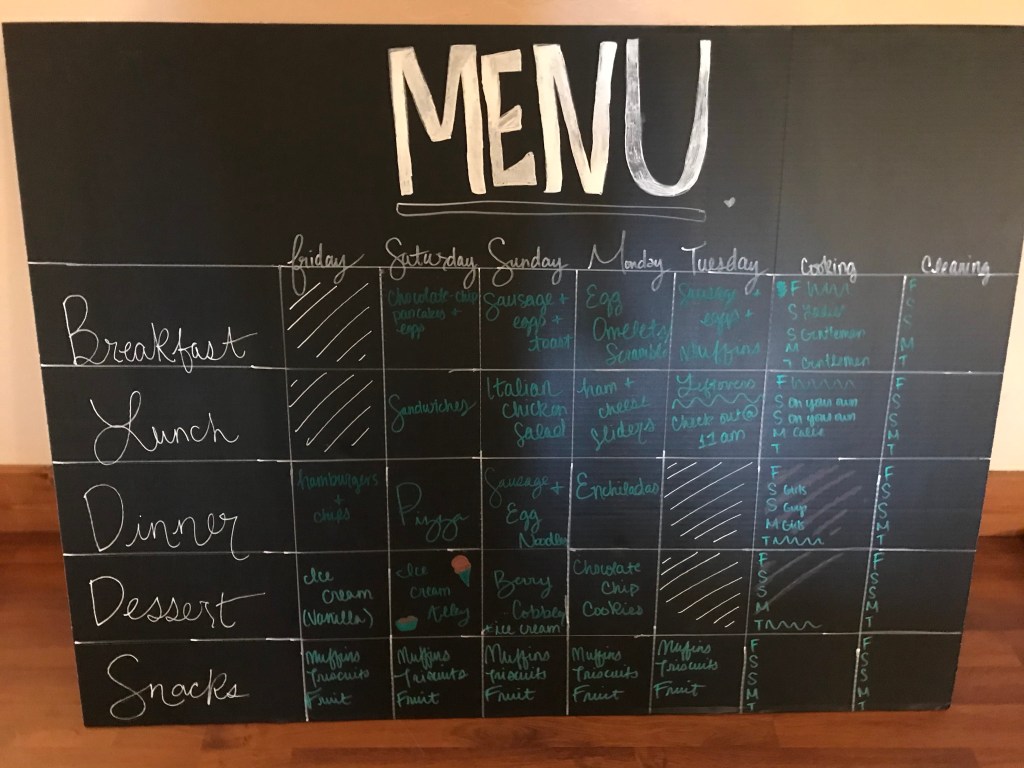 MENU
Friday Saturday Sunday Monday Tuesday Cooking Cleaning
Breakfast
Chocolate-chip
pancakes +
eggs
Sausage +
eggs +
toast
Egg
Omelets
Scramble
Sausage +
eggs +
Muffins
F
S Ladies
S Gentlemen
M
T Gentlemen
F
S
S
M
T
Lunch
Sandwiches
Italian
Chicken
Salad
ham +
cheese
Sliders
Leftovers
Check out @
11 am
F
S on your own
S on your own
M
T
F
S
S
M
T
Dinner
hamburgers
+
chips
Pizza
Sausage +
Egg
Noodles
Enchiladas
F
S Girls
S Guys
M Girls
T
F
S
S
M
T
Dessert
Ice
Cream
(Vanilla)
Ice
Cream
Alley
Berry
Cobbler
+ ice cream
Chocolate
Chip
Cookies
F
S
S
M
T
F
S
S
M
T
Snacks
Muffins
Triscuits
Fruit
Muffins
Triscuits
Fruit
Muffins
Triscuits
Fruit
Muffins
Triscuits
Fruit
Muffins
Triscuits
Fruit
F
S
S
M
T
F
S
S
M
T